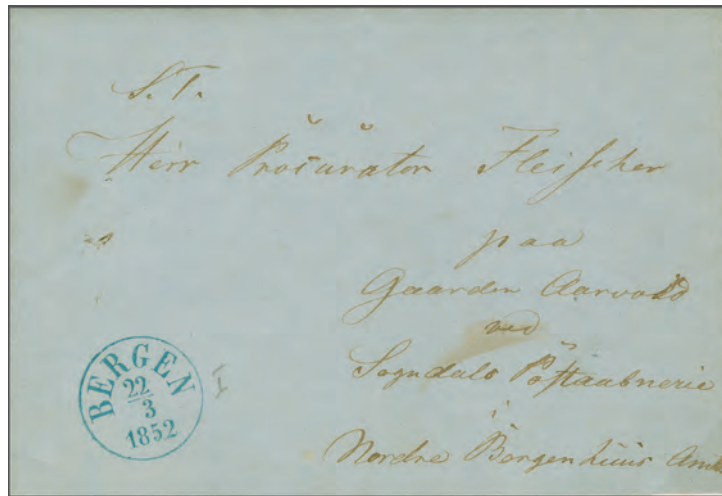 S. T.
Herr Procurator Fleischer
paa
Gaarden Aarvold
ved
Sogndals Postaabnerie
i
Nordre Bergenhuus Amt
BERGEN
22
3
1852
I